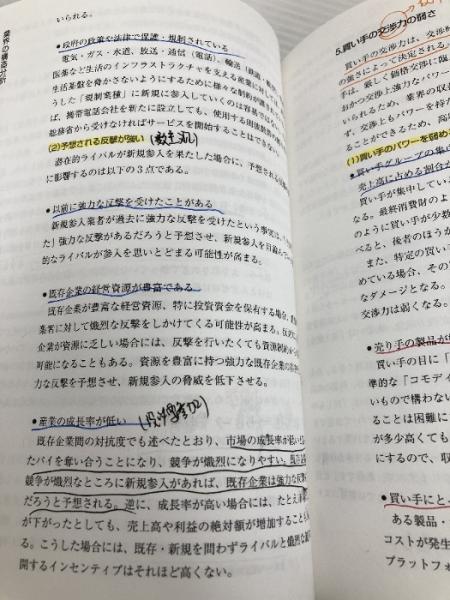 業界の構造分析
いられる。
●政府の政策や法律で保護・規制されている
電気・ガス・水道、放送・通信（電話）、輸送（鉄道・
医薬など生活のインフラストラクチャを支える産業に対し
生活基盤を脅かさないようにするために様々な制約が課
うした「規制業種」に新規に参入していくのは容易では
ば、携帯電話会社を新たに設立しても、使用する周波数
総務省から受けなければサービスを開始することはでき
(2)予想される反撃が強い
潜在的ライバルが新規参入を果たした場合に、予想される
に影響するのは以下の３点である。
●以前に強力な反撃を受けたことがある
新規参入業者が過去に強力な反撃を受けたという事実は、
た」強力な反撃があるだろうと予想させ、新規参入を目論
的なライバルが参入を思いとどまる可能性が高まる。
●既存企業の経営資源が豊富である
既存企業が豊富な経営資源、特に投資資金を保有する場合、
業者に対して熾烈な反撃をしかけてくる可能性が高まる。反対に
企業が資源に乏しい場合には、反撃を行いたくても資源制約から
可能になることもある。資源を豊富に持つ強力な既存企業の
力な反撃を予想させ、新規参入の脅威を低下させる。
●産業の成長率が低い
既存企業間の対抗度でも述べたとおり、市場の成長率が低い
たパイを奪い合うことになり、競争が熾烈になりやすい。既
競争が熾烈なところに新規参入があれば、既存企業は強力な反
だろうと予想される。逆に、成長率が高い場合には、たとえ
が下がったとしても、売上高や利益の絶対額が増加すること
る。こうした場合には、既存・新規を問わずライバルと熾烈な
開するインセンティブはそれほど高くない。
5.買い手の交渉力の弱さ
買い手の交渉力は、
の強さによって決定される
手は、厳しく価格交渉に臨
おかつ交渉上強力なパワー
いられるため、業界の収
ず、交渉上もパワーを持た
ことができるため、高
(1)買い手のパワーを弱め
●買い手グループの集中
売上高に占める割合
買い手が集中してい
なる。最終消費財の
のように買い手が少
べると、後者のほう
また、特定の買い
めている場合、その
なダメージとなる。
交渉力は弱くなる。
●売り手の製品が
買い手の目に「
準的な「コモディ
いもので構わない
ることは困難に
が多少高くても
にするので、収
●買い手にと
ある製品・
コストが発生
プラットフォ